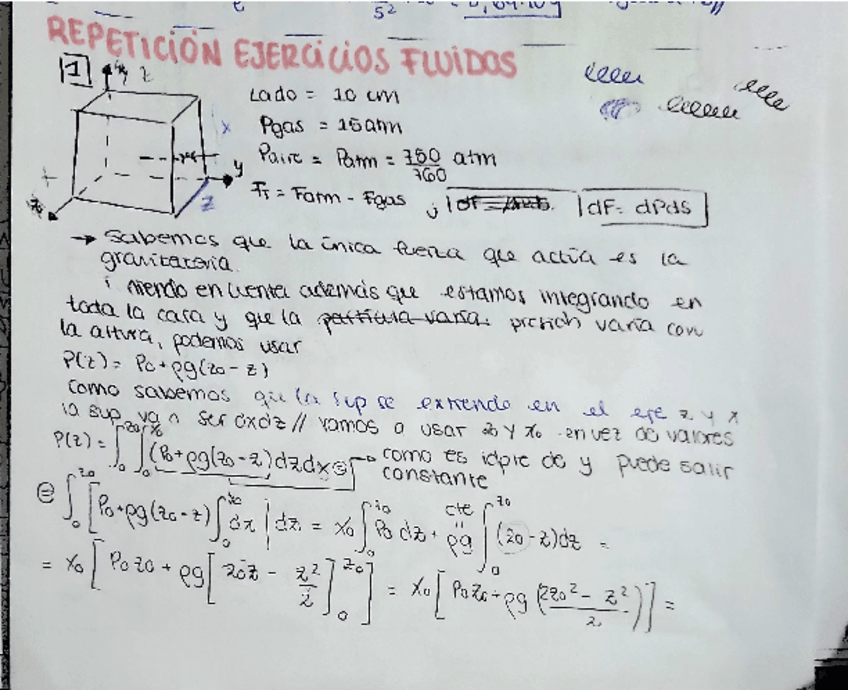 REPETICIÓN EJERCICIOS FLUIDOS
1
z
Lado = 10 cm
x
Pgas = 15 atm
y
Paire = Patm = 750/760 atm
z
FT = Fatm - Fgas ; dF = dPds
→ Sabemos que la única fuerza que actúa es la
gravitatoria.
niendo en cuenta además que estamos integrando en
toda la cara y que la partícula varía. presión varía con
la altura, podemos usar
P(z) = P0 + ρg(z0 - z)
como sabemos que la sup se extiende en el eje z y x
la sup va a ser dxdz // vamos a usar z0 y x0 en vez de valores
P(z) = ∫0^z0 ∫0^x0 (P0 + ρg(z0 - z)) dzdx ⊜ → como es idpte de y puede salir
constante
⊜ ∫0^z0 [P0 + ρg(z0 - z) ∫0^x0 dx] dz = x0 ∫0^z0 P0 dz + cte ρg ∫0^z0 (z0 - z)dz =
= x0 [P0 z0 + ρg [z0z - z²/2]0^z0] = x0 [P0 z0 + ρg (2z0² - z²/2)] =